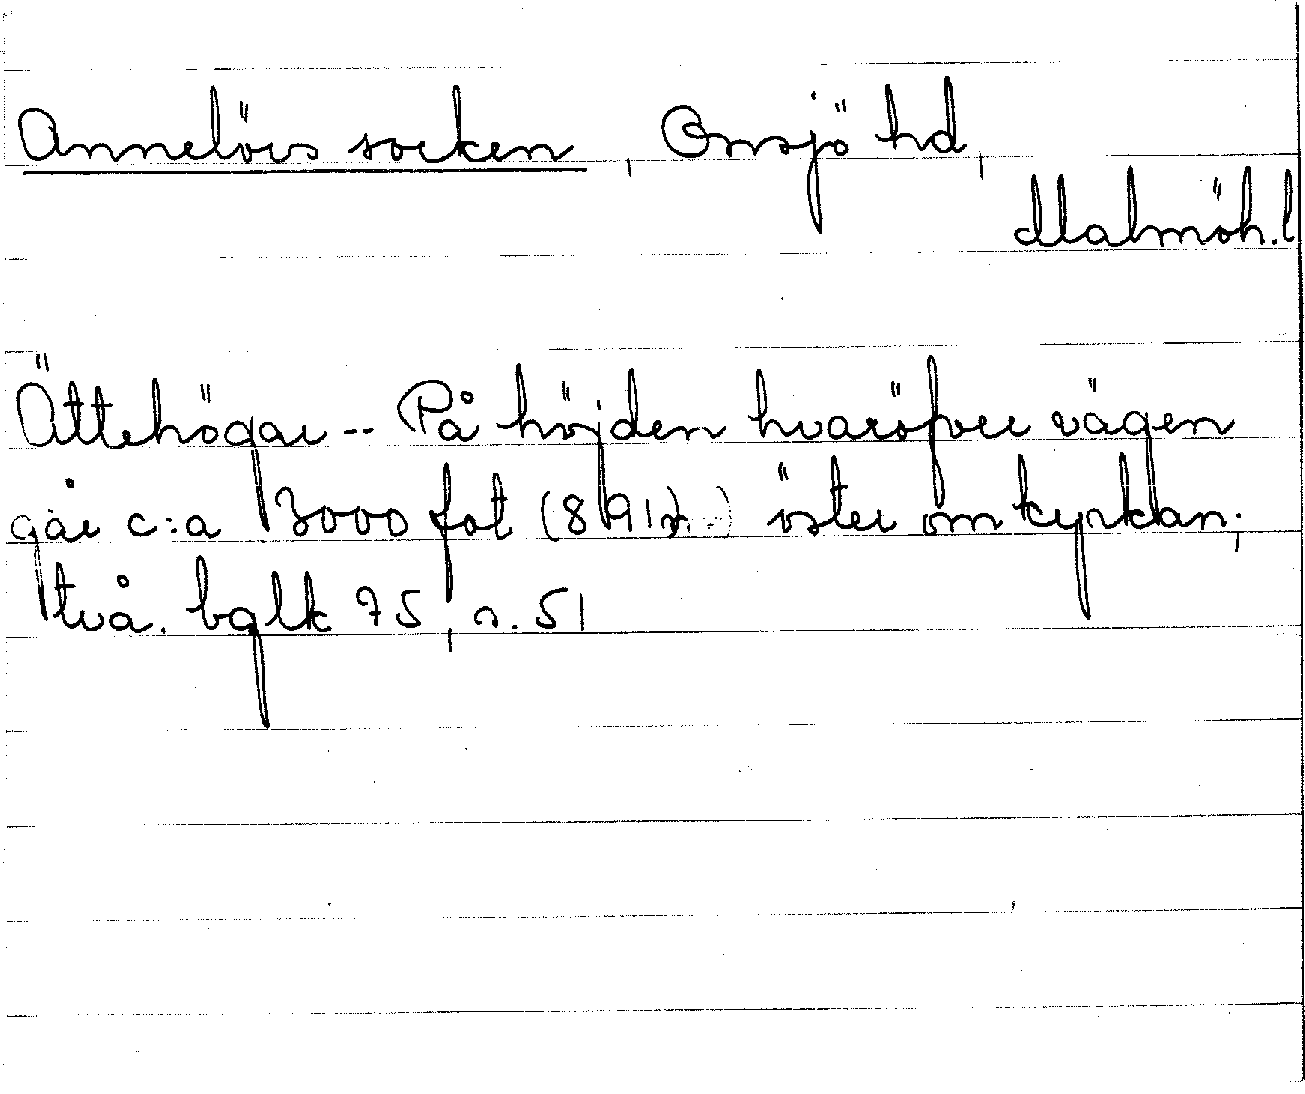 Annelövs socken, Onsjö hd,
Malmöh.l
Ättehögar -- På höjden hvaröfver vägen
går c:a 3000 fot (891 ) öster om kyrkan,
två. bglk 75, s. 51